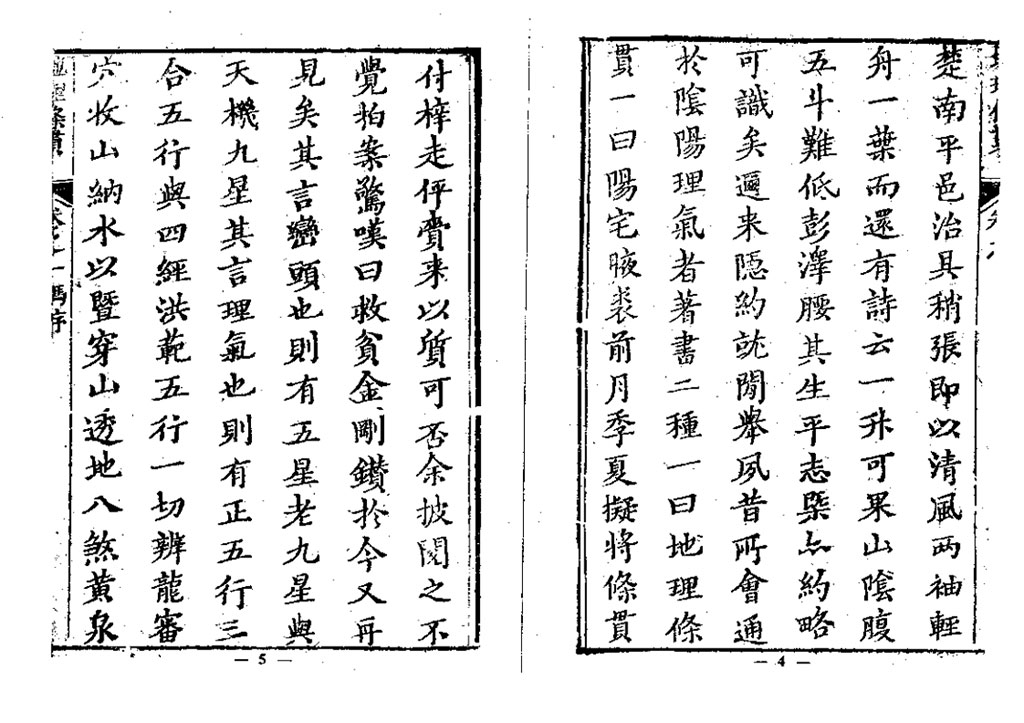 楚南平邑治具稍張即以清風兩袖輕
舟一葉而還有詩云一升可果山陰腹
五斗難低彭澤腰其生平志槩亦約略
可識矣邇来隱約就閒舉夙昔所會通
於陰陽理氣者著書二種一曰地理條
貫一曰陽宅腋裘前月季夏擬將條貫
— 4 —
付梓走伻賫来以質可否余披閱之不
覺拍案驚嘆曰救貧金剛鑽於今又再
見矣其言巒頭也則有五星老九星與
天機九星其言理氣也則有正五行三
合五行與四經洪範五行一切辨龍審
穴收山納水以暨穿山透地八煞黃泉
條貫
馮序
— 5 —